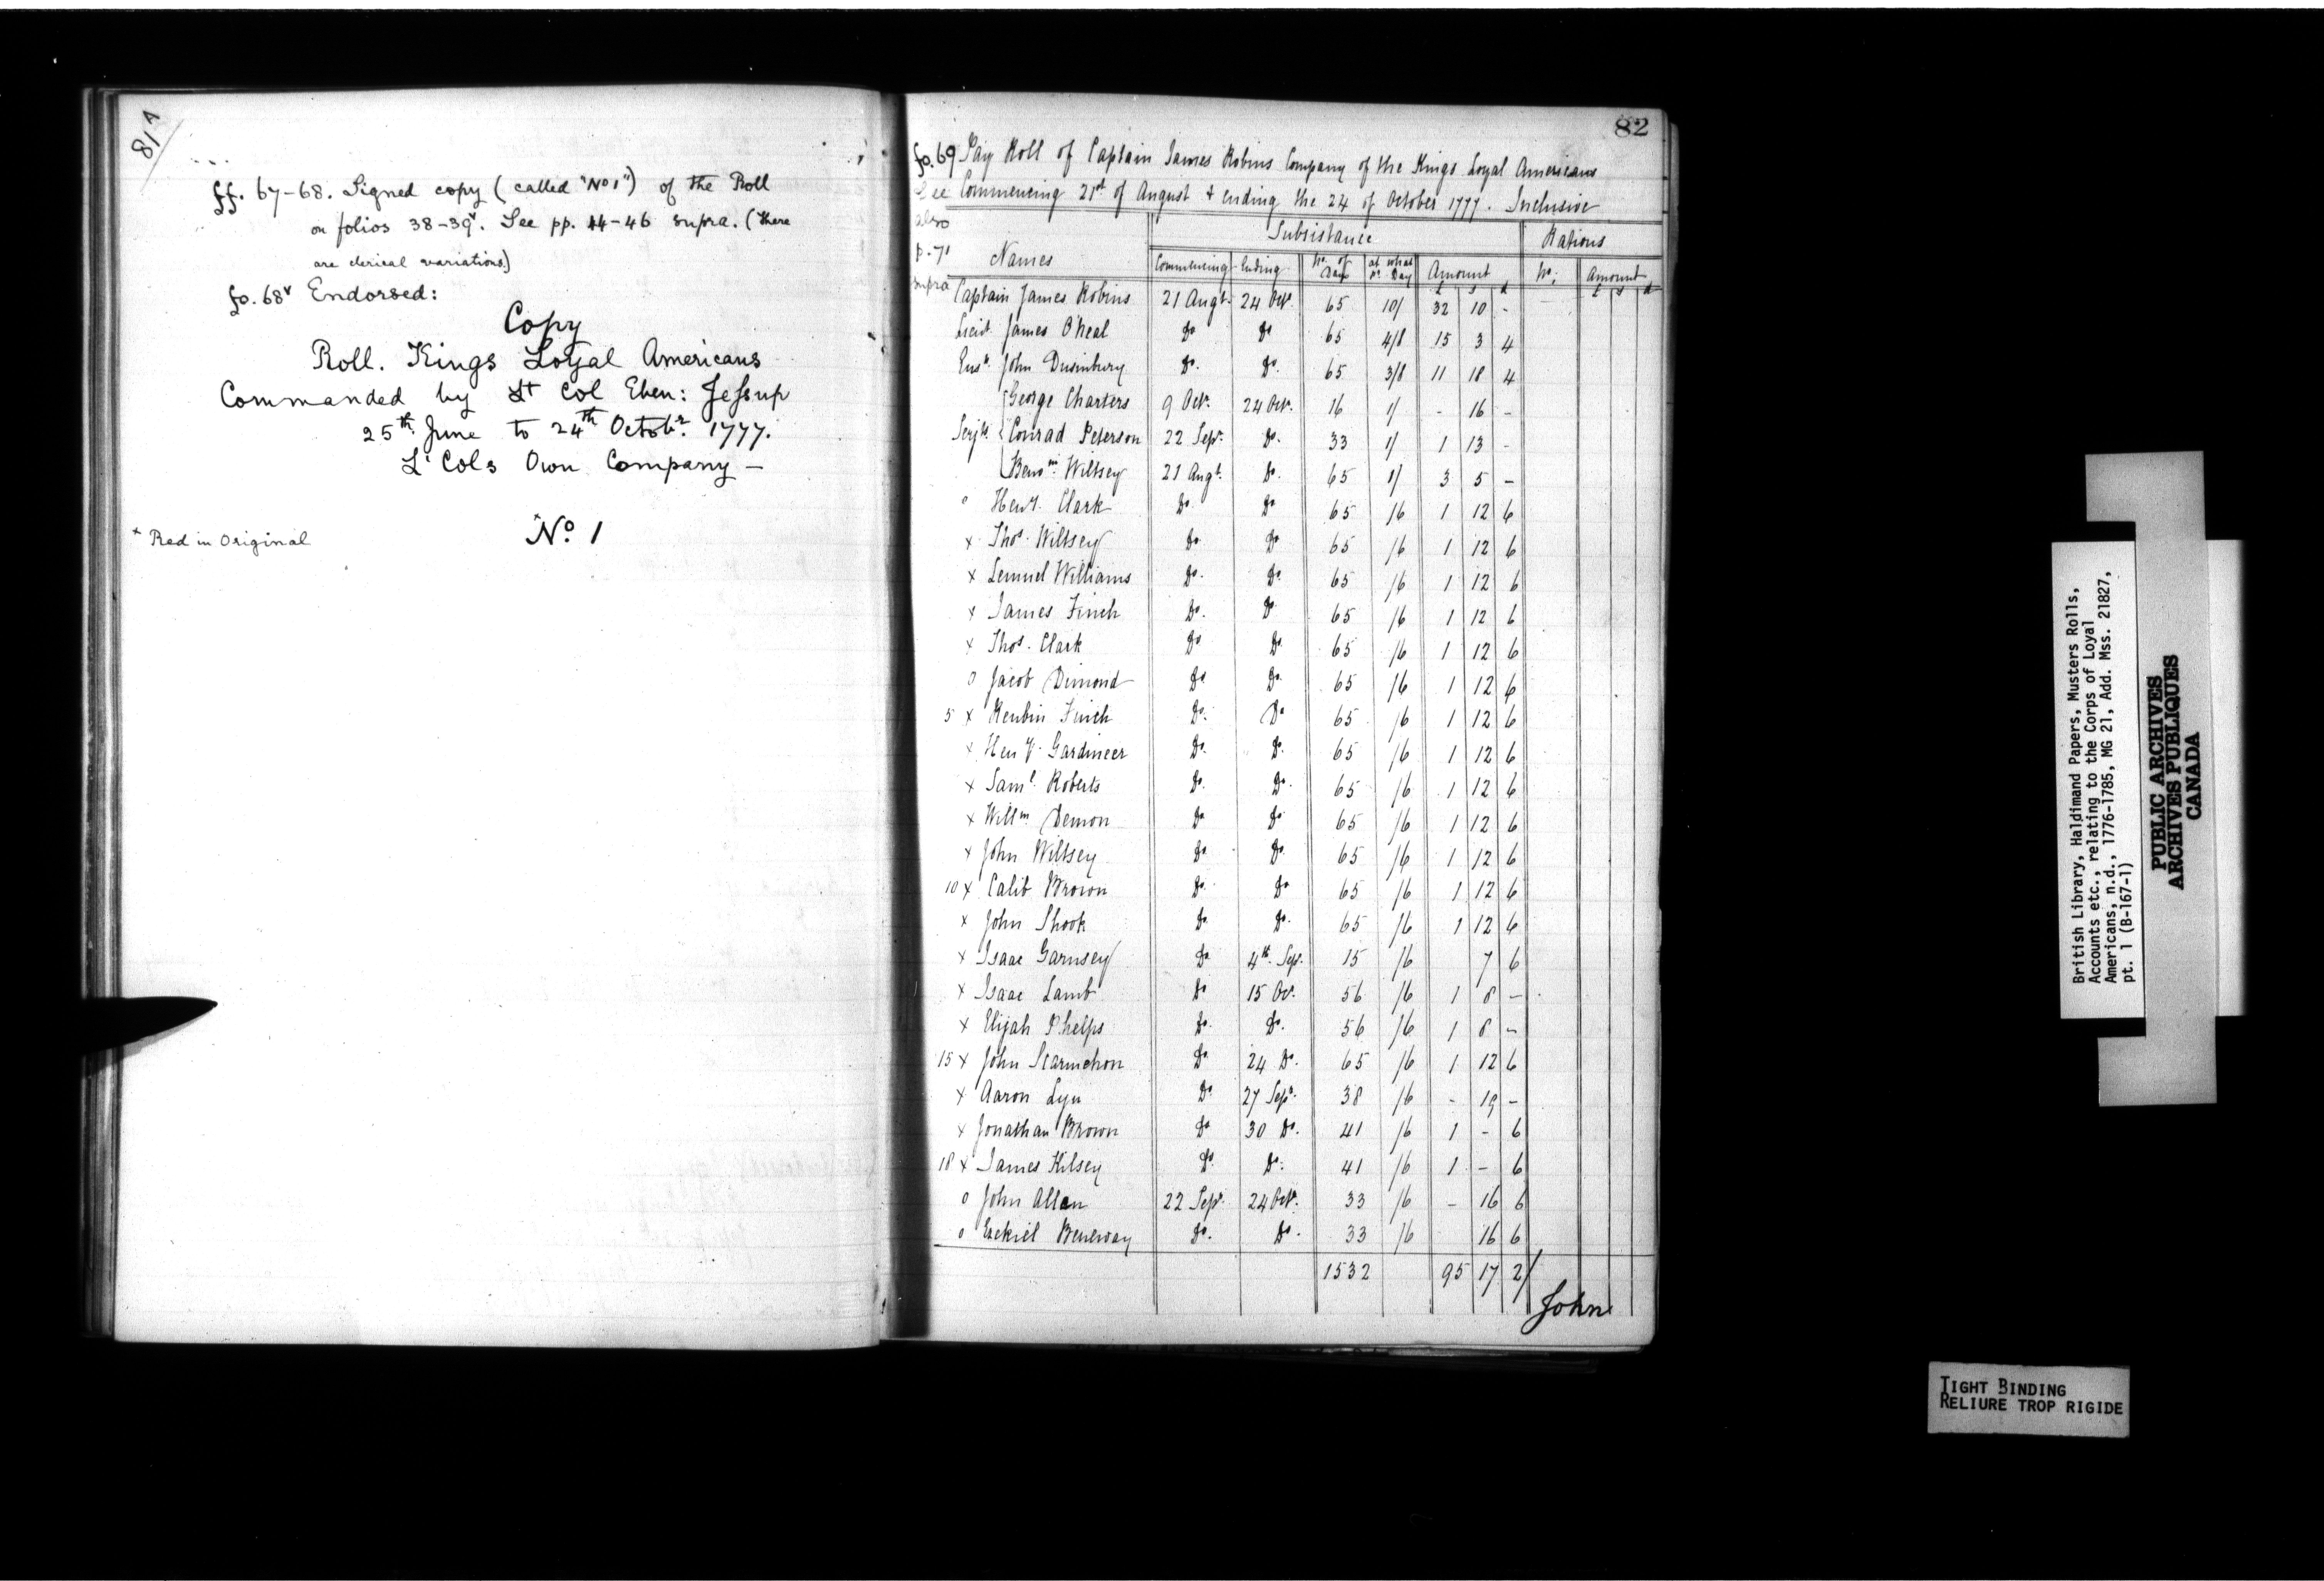 81A
ff. 67-68. Signed copy (called "No 1") of the Roll
on folios 38-39v. See pp. 44-46 supra. (There
are clerical variations)
fo. 68v Endorsed:
Copy
Roll. Kings Loyal Americans
Commanded by Lt Col Eben: Jessup
25th June to 24th Octobr. 1777.
Lt Cols Own Company —
x No. 1
x Red in Original
82
fo. 69 Pay Roll of Captain James Robins Company of the Kings Loyal Americans
Commencing 21st of August & ending the 24 of October 1777. Inclusive
See also p. 71 supra
Subsistance Rations
Names Commencing Ending No. of Days at what pr. Day Amount No. Amount
£ s d £ s d
Captain James Robins 21 Augt. 24 Octr. 65 10/ 32 10 -
Lieut. James O'Neal Do Do 65 4/8 15 3 4
Ensn. John Dusinbury Do. Do. 65 3/8 11 18 4
George Charters 9 Octr. 24 Octr. 16 1/ - 16 -
Serjts. Conrad Peterson 22 Sepr. Do. 33 1/ 1 13 -
Benmn. Wiltsey 21 Augt. Do. 65 1/ 3 5 -
o Henr. Clark Do. Do 65 /6 1 12 6
x Thos. Wiltsey Do. Do 65 /6 1 12 6
x Lemuel Williams Do. Do. 65 /6 1 12 6
x James Finch Do. Do 65 /6 1 12 6
x Thos. Clark Do Do. 65 /6 1 12 6
o Jacob Dimond Do Do. 65 /6 1 12 6
5 x Reubin Finch Do. Do 65 /6 1 12 6
x Hen V. Gardineer Do. Do. 65 /6 1 12 6
x Saml Roberts Do. Do. 65 /6 1 12 6
x Willm. Demon Do Do 65 /6 1 12 6
x John Wiltsey Do. Do. 65 /6 1 12 6
10 x Calib Brown Do. Do 65 /6 1 12 6
x John Shook Do Do. 65 /6 1 12 6
x Isaac Garnsey Do 4th. Sepr. 15 /6 7 6
x Isaac Lamb Do 15 Oc. 56 /6 1 8 -
x Elijah Phelps Do. Do. 56 /6 1 8 -
15 x John Scarmehon Do 24 Do. 65 /6 1 12 6
x Aaron Lyn Do 27 Sepr. 38 /6 - 19 -
x Jonathan Brown Do 30 Do. 41 /6 1 - 6
18 x James Kilsey Do. Do. 41 /6 1 - 6
o John Allen 22 Sepr. 24 Octr. 33 /6 - 16 6
o Ezekiel Beneway Do. Do. 33 /6 16 6
1532 95 17 2/
John
British Library, Haldimand Papers, Musters Rolls,
Accounts etc., relating to the Corps of Loyal
Americans, n.d., 1776-1785, MG 21, Add. Mss. 21827,
pt. 1 (B-167-1)
PUBLIC ARCHIVES
ARCHIVES PUBLIQUES
CANADA
TIGHT BINDING
RELIURE TROP RIGIDE